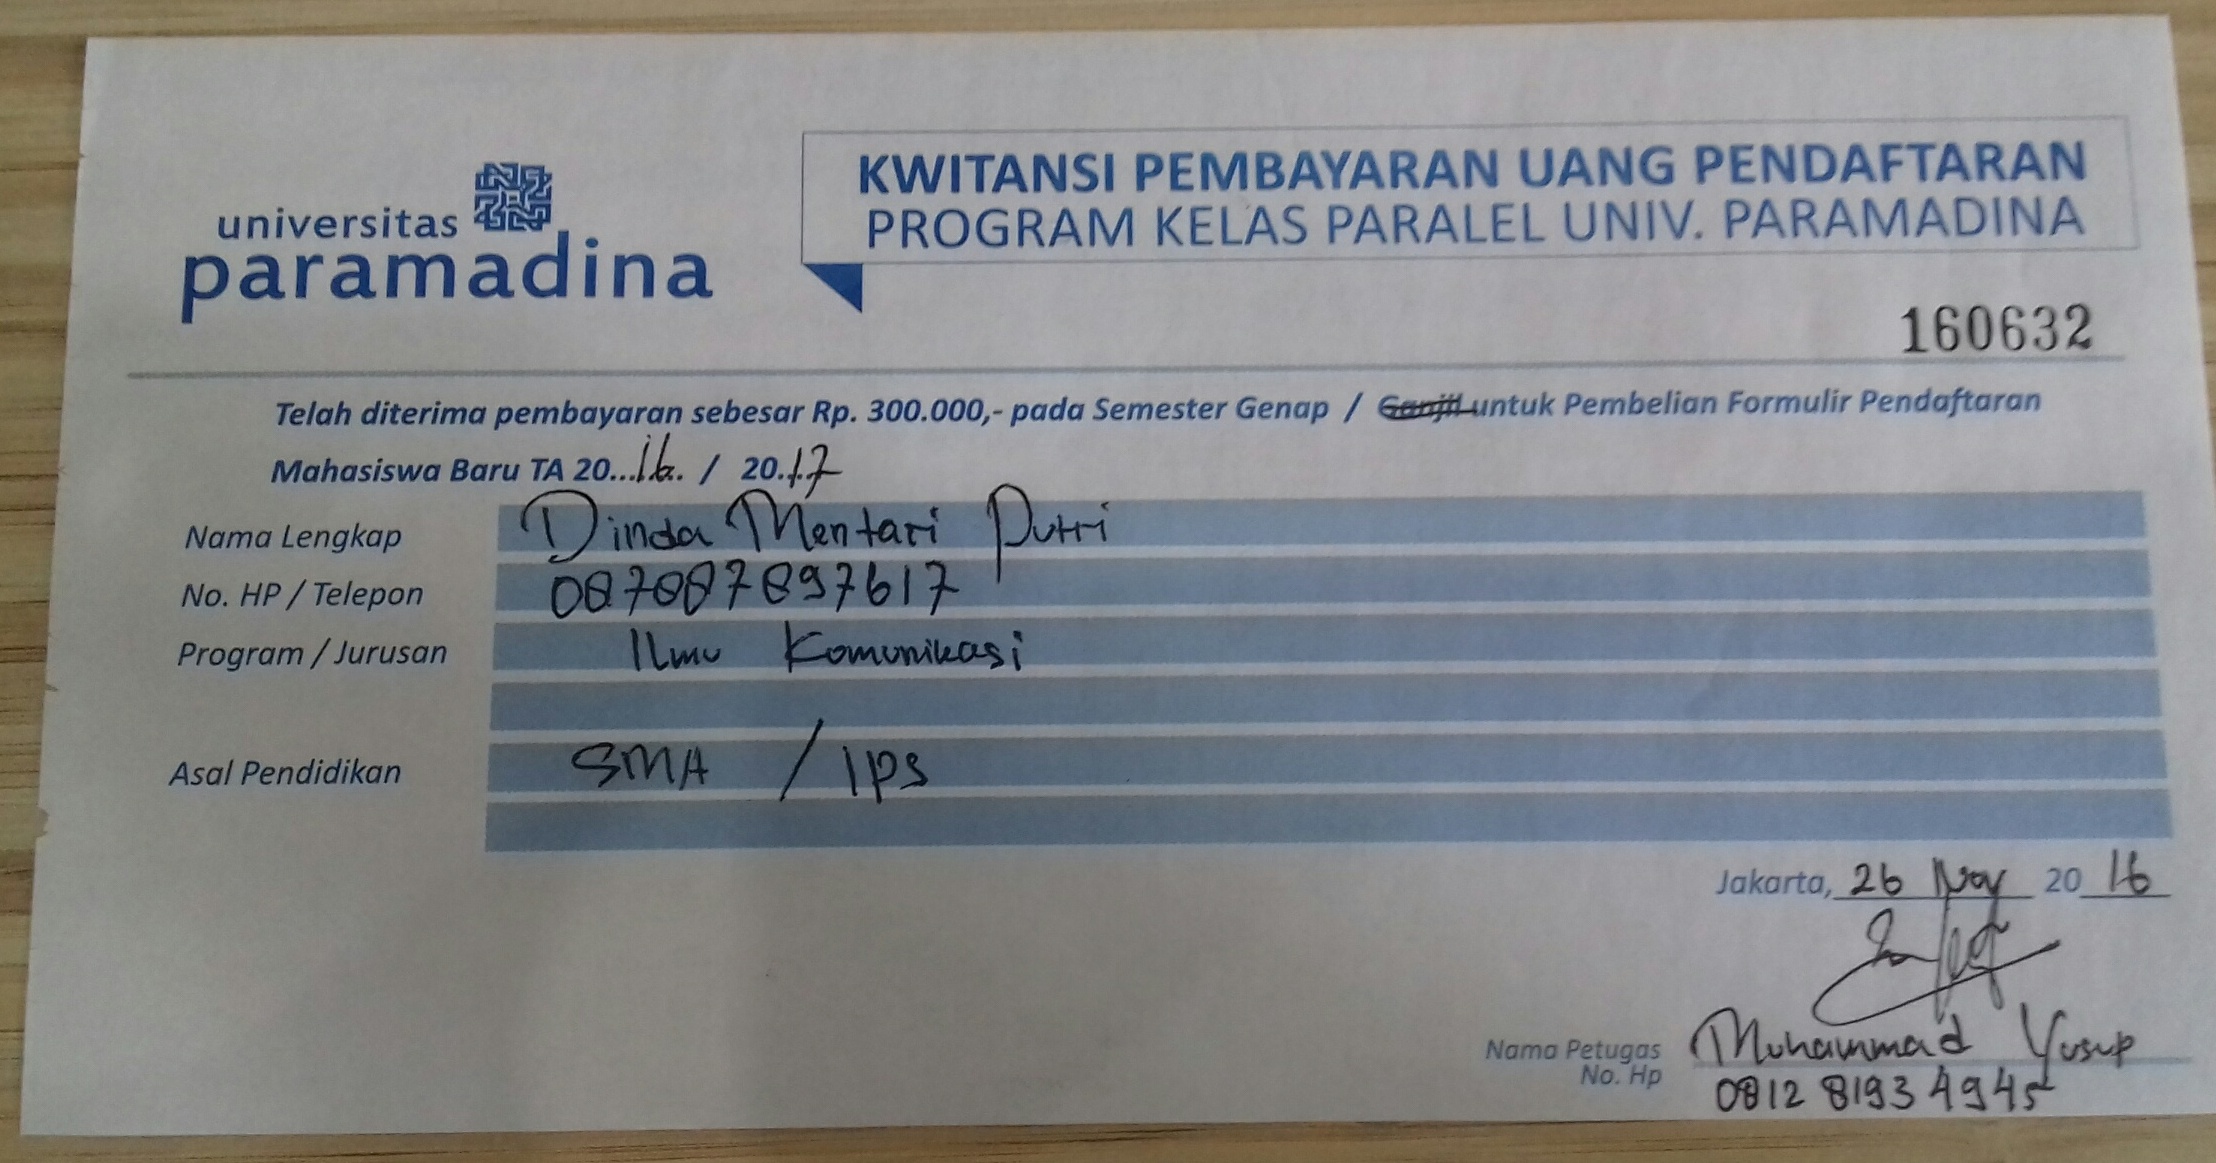 universitas
paramadina
KWITANSI PEMBAYARAN UANG PENDAFTARAN
PROGRAM KELAS PARALEL UNIV. PARAMADINA
160632
Telah diterima pembayaran sebesar Rp. 300.000,- pada Semester Genap / Ganjil untuk Pembelian Formulir Pendaftaran
Mahasiswa Baru TA 20...16.. / 20.17
Nama Lengkap Dinda Mentari Putri
No. HP / Telepon 087887897617
Program / Jurusan Ilmu Komunikasi
Asal Pendidikan SMA / IPS
Jakarta, 26 Nov 20 16
Nama Petugas Muhammad Yusup
No. Hp 0812 8193 4945